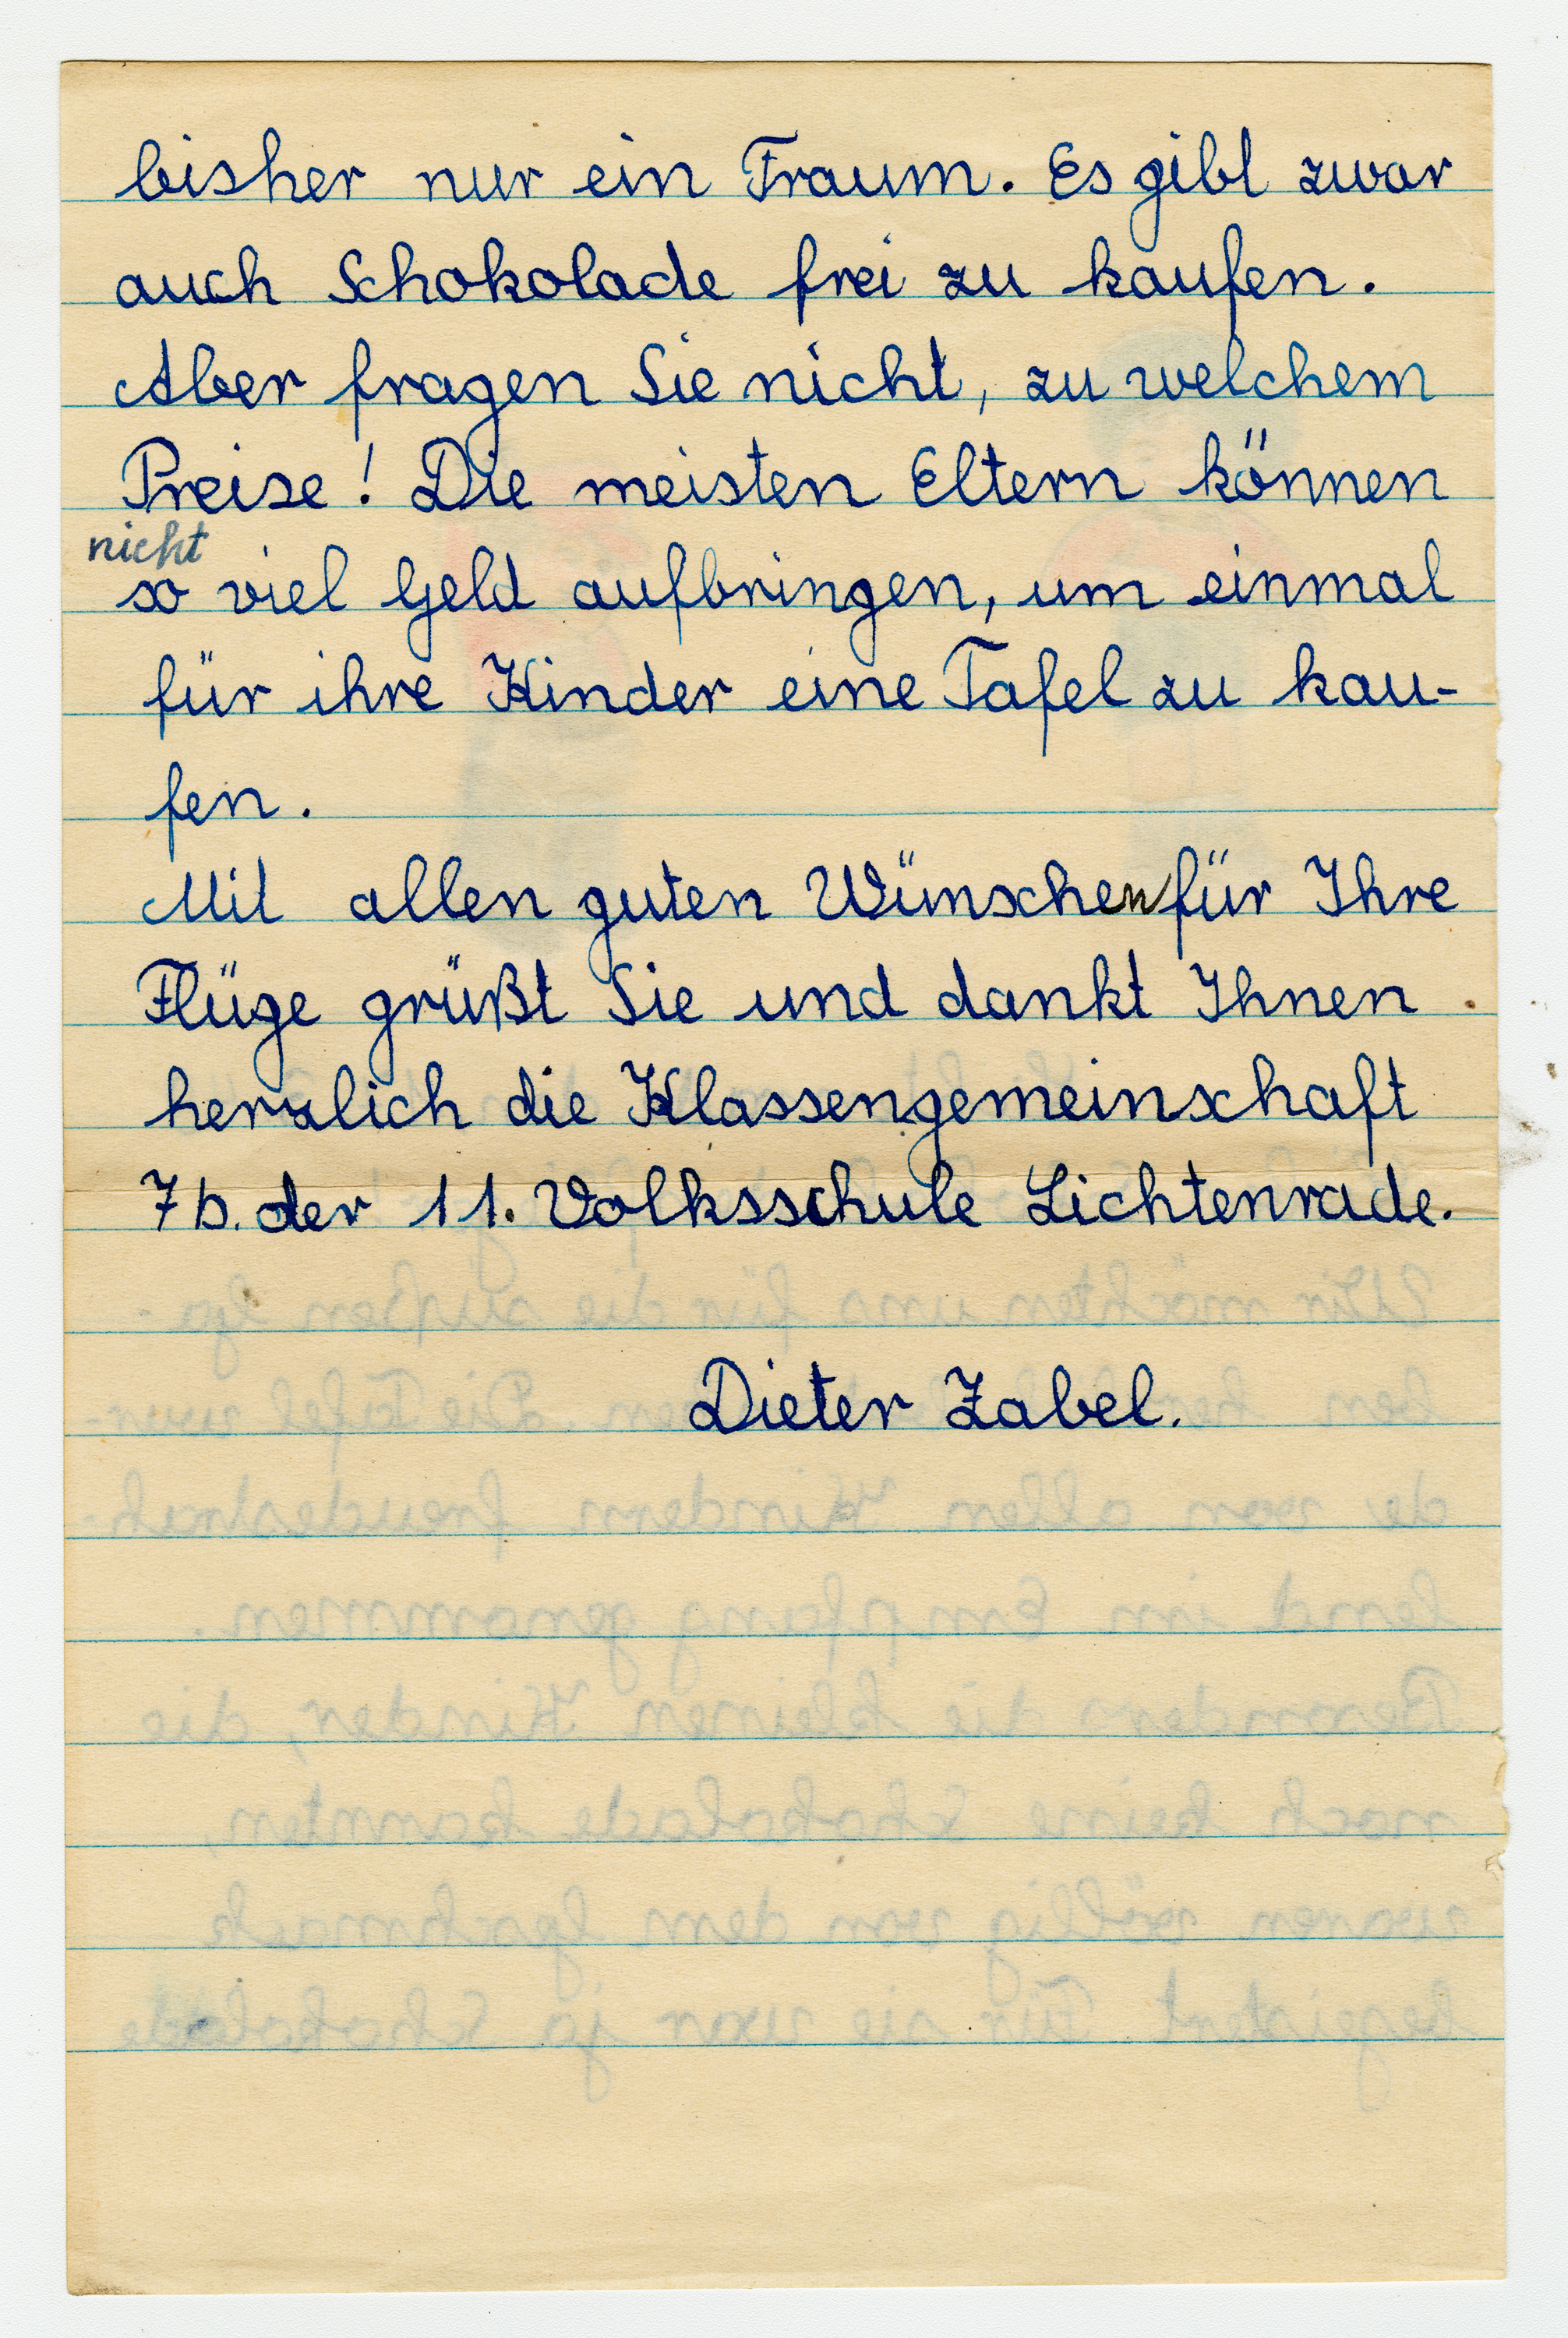 bisher nur ein Traum. Es gibt zwar
auch Schokolade frei zu kaufen.
Aber fragen Sie nicht, zu welchem
Preise! Die meisten Eltern können
nicht
so viel Geld aufbringen, um einmal
für ihre Kinder eine Tafel zu kau-
fen.
Mit allen guten Wünschen für Ihre
Flüge grüßt Sie und dankt Ihnen
herzlich die Klassengemeinschaft
7b. der 11. Volksschule Lichtenrade.
Dieter Zabel.